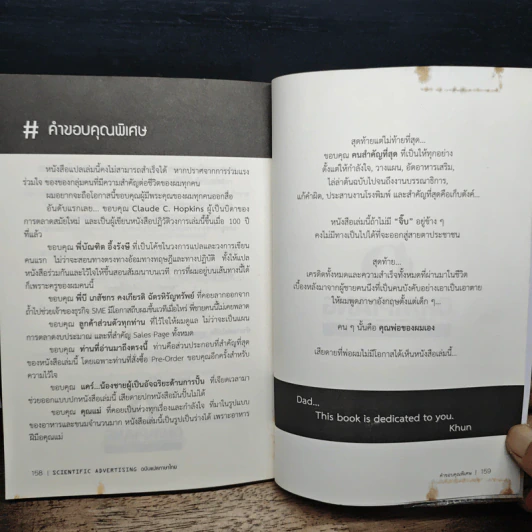 # คำขอบคุณพิเศษ
หนังสือแปลเล่มนี้คงไม่สามารถสำเร็จได้ หากปราศจากการร่วมแรง
ร่วมใจ ของของกลุ่มคนที่มีความสำคัญต่อชีวิตของผมทุกคน
ผมอยากจะถือโอกาสนี้ขอบคุณผู้มีพระคุณของผมทุกคนออกสื่อ
อันดับแรกเลย... ขอบคุณ Claude C. Hopkins ผู้เป็นบิดาของ
การตลาดสมัยใหม่ และเป็นผู้เขียนหนังสือปฏิวัติวงการเล่มนี้ขึ้นเมื่อ 100 ปี
ที่แล้ว
ขอบคุณ พี่บัณฑิต อึ้งรังษี ที่เป็นโค้ชในวงการแปลและวงการเขียน
คนแรก ไม่ว่าจะสอนทางตรงทางอ้อมทางทฤษฎีและทางปฏิบัติ ทั้งให้แปล
หนังสือร่วมกันและไว้ใจให้ขึ้นสอนสัมมนาบนเวที การที่ผมอยู่บนเส้นทางนี้ได้
ก็เพราะครูของผมคนนี้
ขอบคุณ พี่ปี เภสัชกร คงเกียรติ ฉัตรหิรัญทรัพย์ ที่คอยลากออกจาก
ถ้ำไปช่วยเจ้าของธุรกิจ SME มีโอกาสปีนผมขึ้นเวทีเมื่อไหร่ พี่ชายคนนี้ไม่เคยพลาด
ขอบคุณ ลูกค้าส่วนตัวทุกท่าน ที่ไว้ใจให้ผมดูแล ไม่ว่าจะเป็นแผน
การตลาดงบประมาณ และที่สำคัญ Sales Page ทั้งหมด
ขอบคุณ ท่านที่อ่านมาถึงตรงนี้ ท่านคือส่วนประกอบที่สำคัญที่สุด
ของหนังสือเล่มนี้ โดยเฉพาะท่านที่สั่งซื้อ Pre-Order ขอบคุณอีกครั้งสำหรับ
ความไว้ใจ
ขอบคุณ แคร์...น้องชายผู้เป็นอัจฉริยะด้านการปั้น ที่เจียดเวลามา
ช่วยออกแบบปกหนังสือเล่มนี้ เสียดายปกหนังสือมันปั้นไม่ได้
ขอบคุณ คุณแม่ ที่คอยเป็นห่วงทุกเรื่องและกำลังใจ ที่มาในรูปแบบ
ของอาหารและขนมจำนวนมาก หนังสือเล่มนี้เป็นรูปเป็นร่างได้ เพราะอาหาร
ฝีมือคุณแม่
158 | SCIENTIFIC ADVERTISING ฉบับแปลภาษาไทย
สุดท้ายแต่ไม่ท้ายที่สุด...
ขอบคุณ คนสำคัญที่สุด ที่เป็นให้ทุกอย่าง
ตั้งแต่ให้กำลังใจ, วางแผน, อัดอาหารเสริม,
ไล่ล่าต้นฉบับไปจนถึงงานบรรณาธิการ,
แก้คำผิด, ประสานงานโรงพิมพ์ และสำคัญที่สุดคือเก็บตังค์...
หนังสือเล่มนี้ถ้าไม่มี “จิ๊บ” อยู่ข้าง ๆ
คงไม่มีทางเป็นไปได้ที่จะออกสู่สายตาประชาชน
สุดท้าย...
เครดิตทั้งหมดและความสำเร็จทั้งหมดที่ผ่านมาในชีวิต
เบื้องหลังมาจากผู้ชายคนนึงที่เป็นคนบังคับอย่างเอาเป็นเอาตาย
ให้ผมพูดภาษาอังกฤษตั้งแต่เด็ก ๆ...
คน ๆ นั้นคือ คุณพ่อของผมเอง
เสียดายที่พ่อผมไม่มีโอกาสได้เห็นหนังสือเล่มนี้...
Dad...
This book is dedicated to you.
Khun
คำขอบคุณพิเศษ | 159